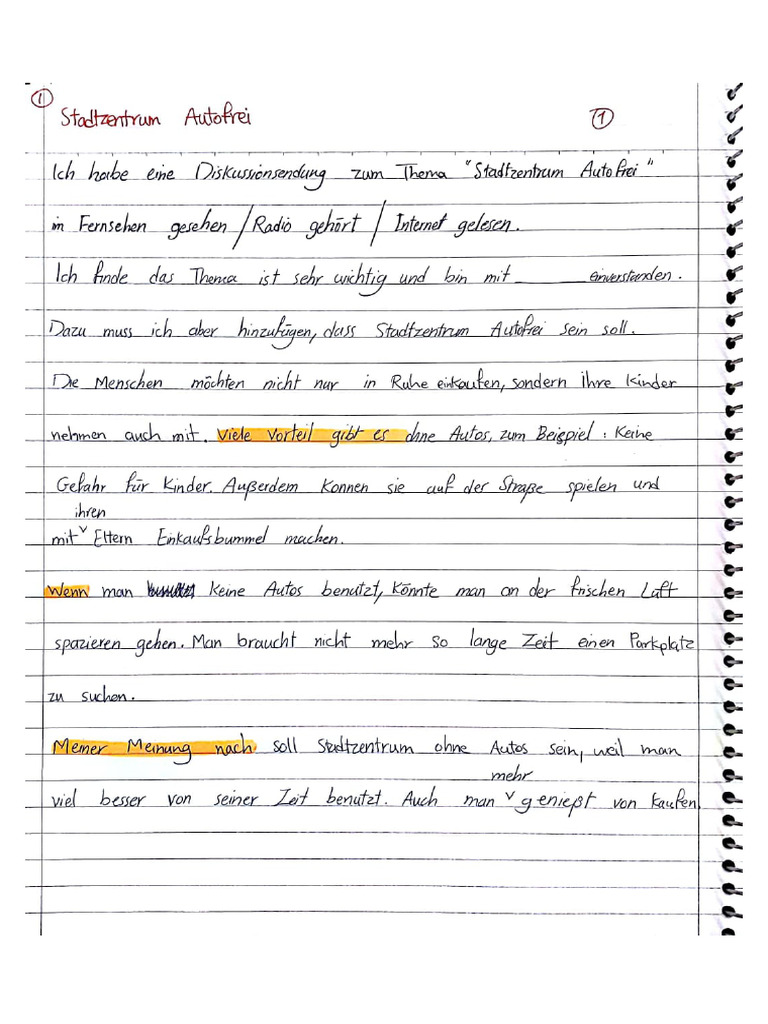 ①
Stadtzentrum Autofrei ①
Ich habe eine Diskussionsendung zum Thema "Stadtzentrum Autofrei"
in Fernsehen gesehen / Radio gehört / Internet gelesen.
Ich finde das Thema ist sehr wichtig und bin mit ________ einverstanden.
Dazu muss ich aber hinzufügen, dass Stadtzentrum Autofrei sein soll.
Die Menschen möchten nicht nur in Ruhe einkaufen, sondern ihre Kinder
nehmen auch mit. Viele Vorteil gibt es ohne Autos, zum Beispiel : Keine
Gefahr für Kinder. Außerdem Konnen sie auf der Straße spielen und
ihren
mit ˅ Eltern Einkaufsbummel machen.
Wenn man keine Autos benutzt, Könnte man an der frischen Luft
spazieren gehen. Man braucht nicht mehr so lange Zeit einen Parkplatz
zu suchen.
Meiner Meinung nach soll Stadtzentrum ohne Autos sein, weil man
mehr
viel besser von seiner Zeit benutzt. Auch man ˅ genießt von Kaufen.